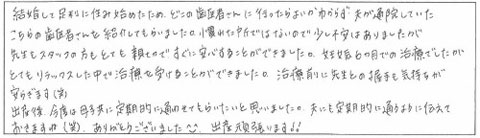 結婚して足利に住み始めたため、どこの歯医者さんに行ったらよいかわからず夫が通院していた
こちらの歯医者さんを紹介してもらいました。小慣れた所ではないので少し不安はありましたが
先生もスタッフの方もとても親切ですぐに安心することができました。妊娠6か月での治療でしたが
とてもリラックスした中で治療を受けることができました。治療前に先生との握手も気持ちが
安らぎます(笑)
出産後、今度は母子共に定期的に通わせてもらいたいと思いました。夫にも定期的に通うように伝えて
おきますね(笑)。ありがとうございました 出産頑張ります!!